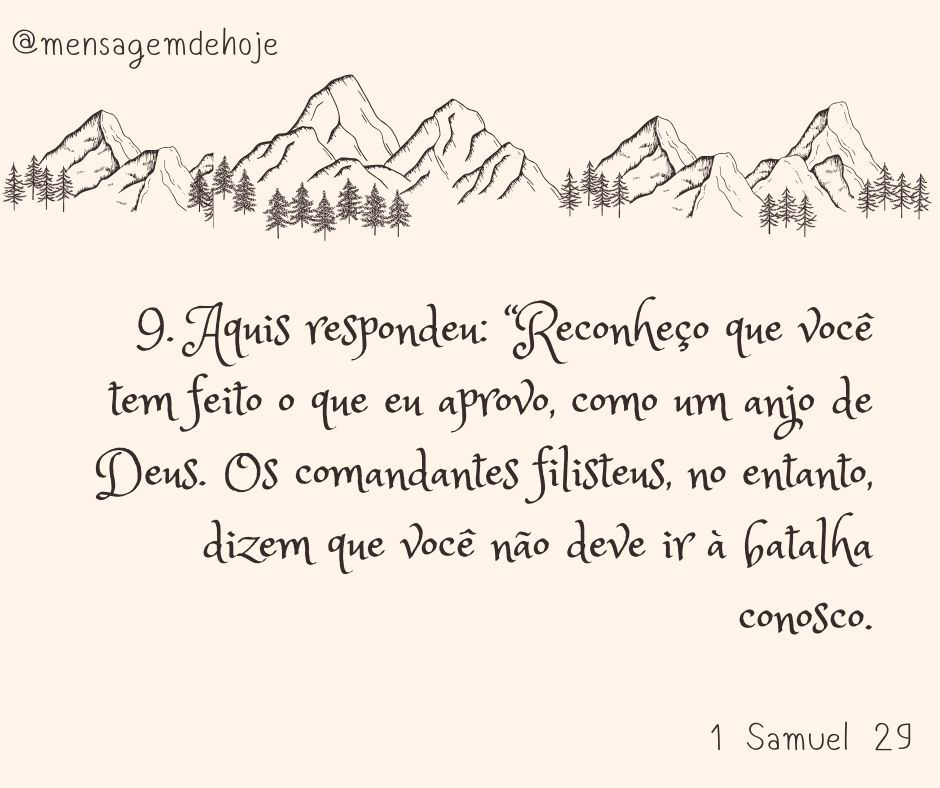 @mensagemdehoje
9. Aquis respondeu: “Reconheço que você
tem feito o que eu aprovo, como um anjo de
Deus. Os comandantes filisteus, no entanto,
dizem que você não deve ir à batalha
conosco.
1 Samuel 29